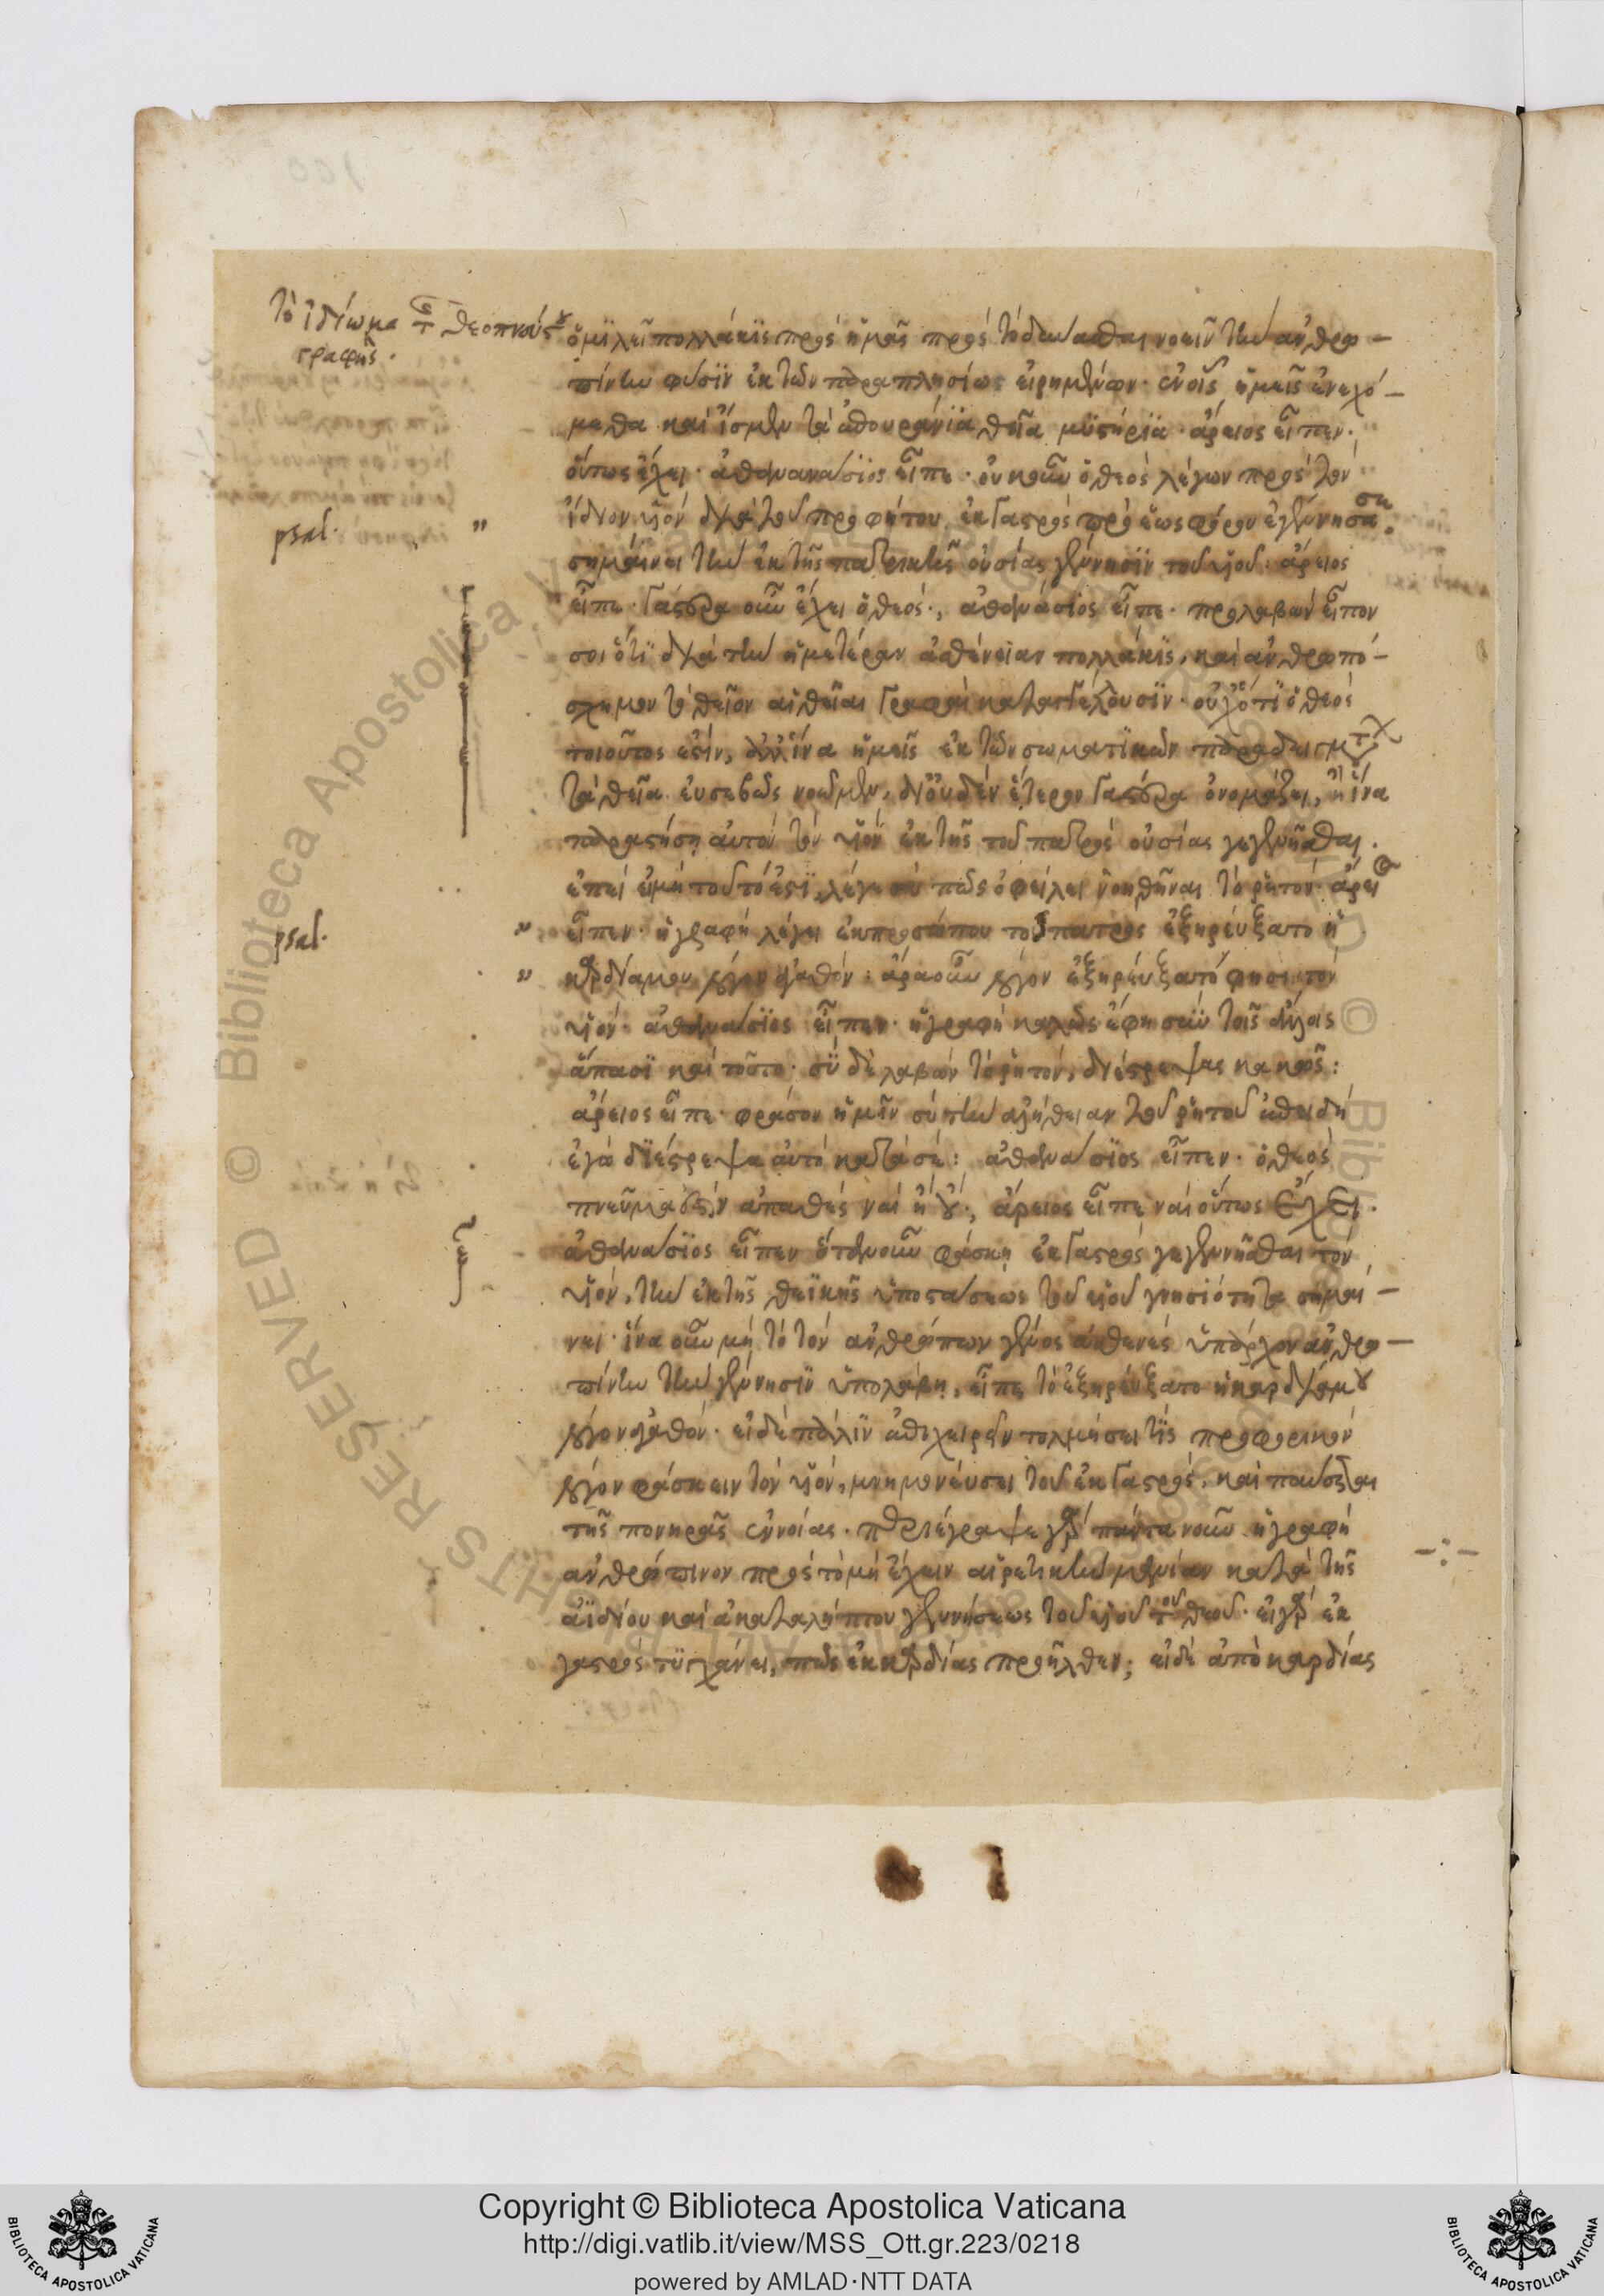 τὸ ἰδίωμα τῆς θεοπνεύστου
γραφῆς.
ὁμιλεῖ πολλάκις πρὸς ἡμᾶς πρὸς τὸ δύνασθαι νοεῖν τὴν ἀνθρω—
πίνην φύσιν ἐκ τῶν παραπλησίως εἰρημένων· ἐν οἷς ἡμεῖς ἐνεχό—
μεθα καὶ ἴσμεν τὰ ἐπουράνια θεῖα μυστήρια· ἄρειος εἶπεν·
οὕτως ἔχει· ἀθανασϊος εἶπε· οὐκοῦν ὁ θεὸς λέγων πρὸς τὸν
psal. " ἴδιον υἱὸν διὰ τοῦ προφήτου ἐκ γαστρὸς πρὸ ἑωσφόρου ἐγέννησα σε.
σημαίνει τὴν ἐκ τῆς πατρικῆς οὐσίας γέννησιν τοῦ υἱοῦ· ἄρειος
εἶπε· γαστέρα οὖν ἔχει ὁ θεός; ἀθανάσιος εἶπε· προλαβὼν εἶπον
σοι ὅτι διὰ τὴν ἡμετέραν ἀσθένειαν πολλάκις, καὶ ἀνθρωπό—
σχημον τὸ θεῖον αἱ θεῖαι γραφαὶ καταγγέλουσιν· οὐχ ὅτι ὁ θεὸς
τοιοῦτος ἐστίν, ἀλλ' ἵνα ἡμεῖς ἐκ τῶν σωματικῶν παραδειγμάτων
τὰ θεῖα εὐσεβῶς νοῶμεν, δι' οὐδὲν ἕτερον γαστέρα ὀνομάζει, ἢ ἵνα
παραστήση αὐτὸν τὸν υἱὸν ἐκ τῆς τοῦ πατρὸς οὐσίας γεγενῆσθαι.
ἐπεὶ εἰ μὴ τοῦτό ἐστι, λέγε σὺ πῶς ὀφείλει νοηθῆναι τὸ ῥητόν· ἄρειος
psal. " εἶπεν· ἡ γραφὴ λέγει ἐκ προσώπου τοῦ πατρὸς ἐξηρεύξατο ἡ
" καρδία μου λόγον ἀγαθόν: ἆρα οὖν λόγον ἐξηρεύξατό φησι τὸν
υἱόν· ἀθανασϊος εἶπεν· ἡ γραφὴ καλῶς ἔφη σὺν τοῖς ἄλλοις
ἅπασι καὶ τοῦτο· σὺ δὲ λαβὼν τὸ ῥητόν, διέστρεψας κακῶς:
ἄρειος εἶπε· φράσον ἡμῖν σὺ τὴν ἀλήθειαν τοῦ ῥητοῦ ἐπειδὴ
ἐγὼ διέστρεψα αὐτὸ κατὰ σέ: ἀθανασϊος εἶπεν· ὁ θεὸς
πνεῦμα ἐστὶν ἀπαθὲς ναὶ ἢ οὔ; ἄρειος εἶπε ναὶ οὕτως ἔχει.
ἀθανασϊος εἶπεν ὅταν οὖν φάσκη ἐκ γαστρὸς γεγεννῆσθαι τὸν
υἱόν, τὴν ἐκ τῆς θεϊκῆς ὑποστάσεως τοῦ υἱοῦ γνησιότητα σημαί—
νει· ἵνα οὖν μὴ τὸ τὸν ἀνθρώπων γένος ἀσθενὲς ὑπάρχον ἀνθρω—
πίνην τὴν γέννησιν ὑπολάβη, εἶπε τὸ ἐξηρεύξατο ἡ καρδία μου
λόγον ἀγαθόν· εἰ δὲ πάλιν ἐπιχειρῶν τολμήσει τὶς προφορικὸν
λόγον φάσκειν τὸν υἱόν, μνημονεύσει τοῦ ἐκ γαστρός, καὶ παύσεται
τῆς πονηρᾶς ἐννοίας· περιέγραψε γὰρ πάντα νοῦν ἡ γραφὴ
ἀνθρώπινον πρὸς τὸ μὴ ἔχειν αἱρετικὴν μανίαν κατὰ τῆς
ἀϊδίου καὶ ἀκαταλήπτου γεννήσεως τοῦ υἱοῦ τοῦ θεοῦ· εἰ γὰρ ἐκ
γαστρὸς τυγχάνει, πῶς ἐκ καρδίας προῆλθεν; εἰ δὲ ἀπὸ καρδίας
Copyright © Biblioteca Apostolica Vaticana
http://digi.vatlib.it/view/MSS_Ott.gr.223/0218
powered by AMLAD·NTT DATA